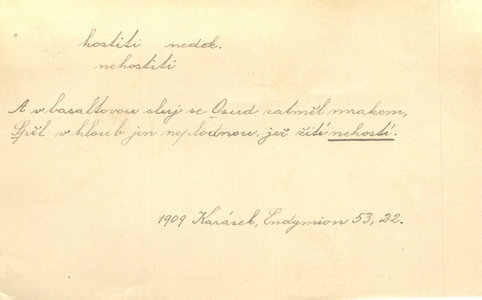 hostiti nedok.
nehostiti
A v basaltovou sluj se Osud zatměl mrakem,
Spěl v hloub jen neplodnou, jež žití nehostí.
1909 Karásek, Endymion 53, 22.